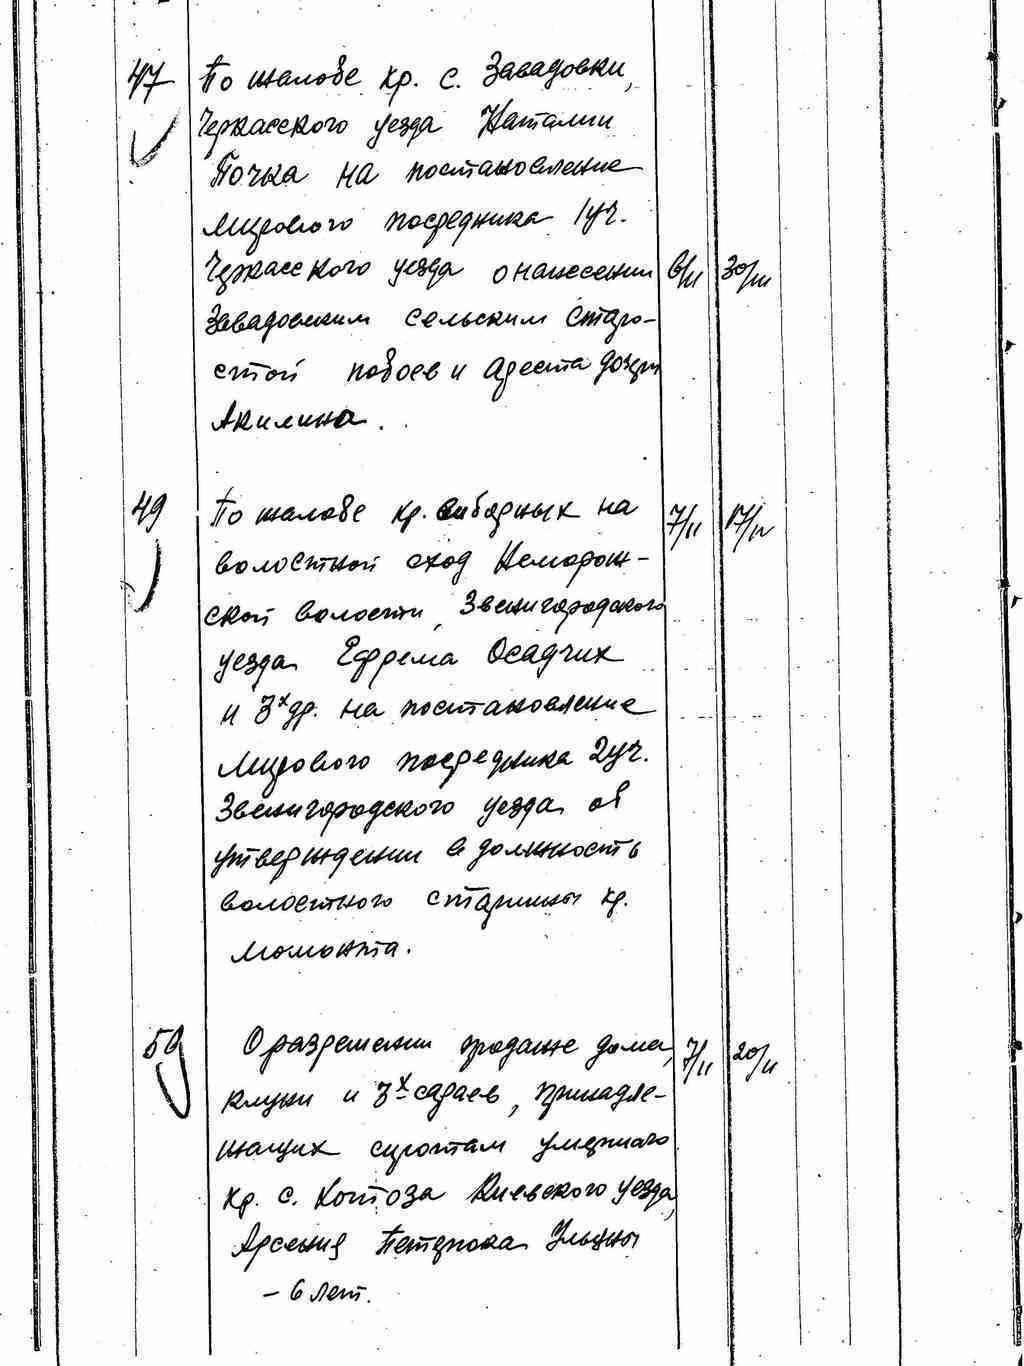 47 По жалобе кр. с. Завадовки,
Черкасского уезда Наталии
Почка на постановление
Мирового посредника 1 уч.
Черкасского уезда о нанесении 6/II 30/III
Завадовским сельским старо-
стой побоев и ареста дочери
Акилина.
49 По жалобе кр. выборных на 7/II 17/IV
волостной сход Неморож-
ской волости, Звенигородского
уезда Ефрема Осадчих
и 3х др. на постановление
Мирового посредника 2 уч.
Звенигородского уезда об
утверждении в должность
волостного старшины кр.
Момонта.
50 О разрешении продаже дома, 7/II 20/II
клуни и 3х сараев, принадле-
жащих сиротам умершего
кр. с. Киевского уезда,
Арсения Петрюка Ульяны
- 6 лет.